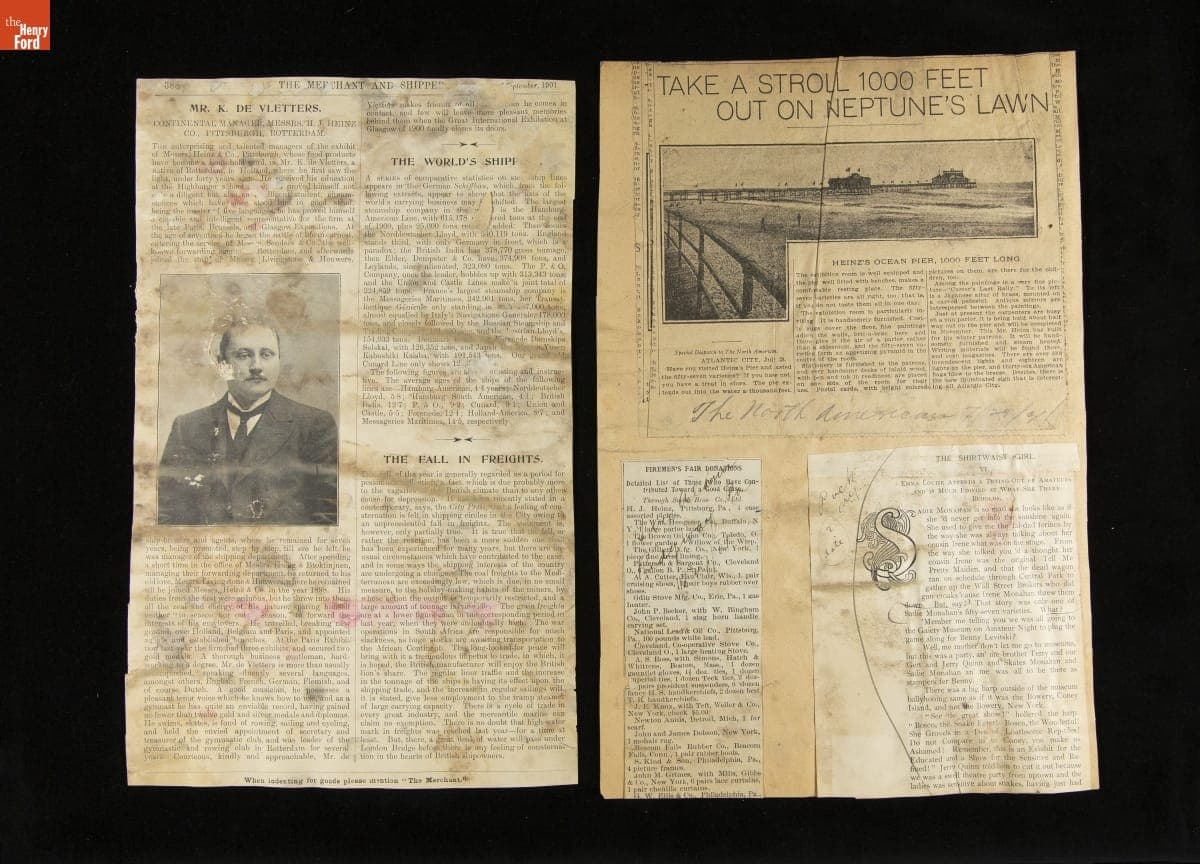 the
Henry
Ford
386
THE MERCHANT AND SHIPPE
September, 1901
MR. K. DE VLETTERS,
CONTINENTAL MANAGER, MESSRS. H. J. HEINZ
CO., PITTSBURGH, ROTTERDAM.
THE enterprising and talented managers of the exhibit
of Messrs. Heinz & Co., Pittsburgh, whose food products
have become a household word, is Mr. K. de Vletters, a
native of Rotterdam, in Holland, where he first saw the
light, under forty years ago. He received his education
at the Highburgher school
proved himself not
a diligent but also an intelligent student, circum-
stances which have since stood him in good stead;
being the master of five languages, he has proved himself
a capable and intelligent representative for the firm at
the late Paris, Brussels, and Glasgow Expositions. At
the age of seventeen he began the battle of life in earnest,
entering the service of
well-
known forwarding agents
Rotterdam, and afterwards
joined the staff of Messrs. Livingstone & Houwers,
ship-brokers and agents, where he remained for seven
years, being promoted, step by step, till he left he
was manager of the shipping department. After spending
a short time in the office of Messrs.
managing their forwarding
he returned to his
old love, Messrs. Livingstone & Houwers, where he remained
till he joined Messrs. Heinz & Co. in the year 1898. His
duties from the first were
but he threw into them
all the zeal and energy of his
forward the
interests of his employers,
travelling, breaking new
ground, over Holland, Belgium and Paris, and appointed
agents and established branches. At the Paris Exhibi-
tion last year the firm had three exhibits, and secured two
gold medals. A thorough business gentleman, hard-
working to a degree, Mr. de Vletters is more than usually
accomplished, speaking fluently several languages,
amongst others, English, French, German, Flemish, and
of course, Dutch. A good musician, he possesses a
fine tenor voice which he knows how to use, and as a
gymnast he has quite an enviable record, having gained
no fewer than twelve gold and silver medals and diplomas.
He swims, skates, is fond of rowing, sailing and cycling,
and held the envied appointment of secretary and
treasurer of the gymnastic club, and was leader of the
gymnastic and rowing club in Rotterdam for several
years. Courteous, kindly and approachable, Mr. de
Vletters makes friends of all
he comes in
contact, and few will leave more pleasant memories
behind them when the Great International Exhibition at
Glasgow of 1900 finally closes its doors.
THE WORLD'S SHIPP
A SERIES of comparative statistics on
lines
appears in the German Schiffbau, which, from the fol-
lowing extracts, appear to show that the
of the
world's carrying business may
shifted. The largest
steamship company in the
is the Hamburg
American Line, with 615,178
tons at the end
of 1900, plus 25,000 tons
added. Then comes
the Norddeutscher Lloyd, with 540,119 tons. England
stands third, with only Germany in front, which is a
paradox; the British India has 378,770 gross tonnage,
then Elder, Dempster & Co. have 374,908 tons, and
Leylands, since alienated, 323,080 tons. The P. & O.
Company, once the leader, bobbles up with 313,343 tons
and the Union and Castle Lines make a joint total of
224,859 tons. France's largest steamship company is
the Messageries Maritimes, 242,001 tons, her Transat-
lantique Générale only standing in
tons,
almost equalled by Italy's Navigazione Generale, 178,000
tons, and closely followed by the Russian Steamship and
Lloyd's,
154,033 tons. Denmark
Forenede Dampskips
Selskab, with 126,352 tons, and Japan
Nippon
Kabushiki Kaisha, with
tons. Our
Cunard Line only shows
The following figures, are
interesting and instruc-
tive. The average ages of the ships of the following
lines are—Hamburg-American, 4·4 years; Norddeutscher
Lloyd, 5·8; Hamburg South American, 4·1; British
India, 12·7; P. & O., 9·2; Cunard, 9·1; Union and
Castle, 5·5; Forenede, 12·1; Holland-America, 8·7; and
Messageries Maritimes, 14·5, respectively.
THE FALL IN FREIGHTS.
of the year is generally regarded as a period for
pessimistic
fact, which is due probably more
to the vagaries
British climate than to any other
cause for depression. It
recently stated in a
contemporary, says, the City Press, that a feeling of con-
sternation is felt in shipping circles in the City owing to
an unprecedented fall in freights. The statement is,
however, only partially true. It is true that the fall, or
rather the reaction, has been a more sudden one than
has been experienced for many years, but there are un-
usual circumstances which have contributed to the case,
and in some ways the shipping interests of the country
are undergoing a change. The coal freights to the Medi-
terranean are exceedingly low, which is due, in no small
measure, to the holiday-making habits of the miners, by
whose action the output is temporarily restricted, and a
large amount of tonnage
The grain freights
are at a lower
corresponding period
last year, when they were unduly high. The war
operations in South African are responsible for much
slackness, as huge stocks are awaiting transportation to
the African Continent. The long-looked-for peace will
bring with it a tremendous impetus to trade, in which, it
is hoped, the British manufacturer will enjoy the British
lion's share. The regular liner traffic and the increase
in the tonnage of the ships is having its effect upon the
shipping trade, and the increase in regular sailings will,
it is stated, give less employment to the tramp steamer
of large carrying capacity. There is a cycle of trade in
every great industry, and the mercantile marine can
claim no exemption. There is no doubt that high-water
mark in freights was reached last year—for a time at
least. But, there, a great deal of water will pass under
London Bridge before there is any feeling of conster-
nation in the hearts of British shipowners.
When indenting for goods please mention "The Merchant."
TAKE A STROLL 1000 FEET
OUT ON NEPTUNE'S LAWN
HEINZ'S OCEAN PIER, 1000 FEET LONG
Special Dispatch to The North American.
ATLANTIC CITY, July 28.
Have you visited Heinz's Pier and tasted
the fifty-seven varieties? If you have not,
you have a treat in store. The pier ex-
tends out into the water a thousand feet.
The exhibition room is well equipped and
the pier well fitted with benches, makes a
comfortable resting place. The fifty-
seven varieties are all right, too; that is,
if you do not taste them all in one day.
The exhibition room is particularly in-
viting. It is handsomely furnished. Cost-
ly rugs cover the floor, fine paintings
adorn the walls, bric-a-brac here and
there give it the air of a parlor rather
than a salesroom, and the fifty-seven va-
rieties form an appetizing pyramid in the
centre of the room.
Stationery is furnished to the patrons,
and very handsome desks of inlaid wood,
with pen and ink in readiness, are placed
on one side of the room for their
use. Postal cards, with bright colored
pictures on them, are there for the chil-
dren, too.
Among the paintings is a very fine pic-
ture—"Custer's Last Rally." To its left
is a Japanese altar of brass, mounted on
a carved pedestal. Antique mirrors are
interspersed between the paintings.
Just at present the carpenters are busy
on a sun parlor. It is being built about half
way out on the pier and will be completed
in November. This Mr. Heinz has built
for his winter patrons. It will be hand-
somely furnished and steam heated.
Writing materials will be found there,
and very magazines. There are over 200
incandescent lights and eighteen arc
lights on the pier, and thirty-six American
flags blow to the breeze. Besides, there is
the new illuminated sign that is interest-
ing all Atlantic City.
The North American 7/29/01
FIREMEN'S FAIR DONATIONS
Detailed List of Those Who Have Con-
tributed Toward a Good Cause.
H. J. Heinz, Pittsburg, Pa., 1 case
assorted pickles.
The Wm. Hengerer Co., Buffalo, N.
Y., 1 large parlor lamp.
The Brown Oil Can Co., Toledo, O.,
1 flower garden, Willow of the Wisp.
The Gilbert Mfg. Co., New York, 1
piece fine dress lining.
Patterson & Sargent Co., Cleveland
O., 6 gallon B. P. S. Paint.
A. Cutter, Eau Clair, Wis., 1 pair
cruising shoes, 1 pair boys rubber over
shoes.
Odin Stove Mfg. Co., Erie, Pa., 1 gas
heater.
John P. Becker, with W. Bingham
Co., Cleveland, 1 stag horn handle
carving set.
National Lead & Oil Co., Pittsburg,
Pa., 100 pounds white lead.
Cleveland Co-operative Stove Co.,
Cleveland O., 1 large heating Stove.
A. S. Ross, with Simons, Hatch &
Whitten, Boston, Mass., 1 dozen
gauntlet gloves, 1½ doz. ties, 1 dozen
Imperial ties, 1 dozen Teck ties, 2 doz-
en pairs president suspenders, 6 dozen
fancy H. S. handkerchiefs, 2 dozen best
T. R. handkerchiefs.
J. E. Knox, with Teft, Weller & Co.,
New York, check $5.00.
Newton Annis, Detroit, Mich., 1 fur
scarf.
John and James Dobson, New York,
1 mohair rug.
Beacon Falls Rubber Co., Beacon
Falls, Conn., 1 pair rubber boots.
S. Kind & Son, Philadelphia, Pa.,
4 picture frames.
John M. Grimes, with Mills, Gibbs
& Co., New York, 6 pairs lace curtains,
1 pair chenille curtains.
G. W. Ellis & Co., Philadelphia, Pa.,
THE SHIRTWAIST GIRL
VI.
EMMA LOUISE ATTENDS A TRYING-OUT OF AMATEURS
AND IS MUCH PLEASED AT WHAT SHE THERE
BEHOLDS.
SADIE MONAHAN is so mad she looks as if
she'd never get into the sunshine again.
She used to give me the dizziest ferines by
the way she was always talking about her
cousin Irene what was on the stage. From
the way she talked you'd a thought her
cousin Irene was the original Tell Me
Pretty Maiden, and that the dead wagon
ran on schedule through Central Park to
gather up the Wall Street brokers who did
gun-breaks 'cause Irene Monahan threw them
down. But, say? That story was only one of
Sadie Monahan's fifty-seven varieties. What?
Member me telling you we was all going to
the Gaiety Museum on Amateur Night to plug the
game along for Benny Levitski?
Well, me mother don't let me go to museums,
but this was a party, an' me brother Terry and our
Gert and Jerry Quinn and Skates Monahan and
Sadie Monahan an' me was all to be there as
stoppers for Benny.
There was a big barp outside of the museum
ballyhooing same as if it was the Bowery, Coney
Island, and not the Bowery, New York.
"See the great show!" hollered the barp.
"Bosco, the Snake Eater! Bosco, the Wonderful!
She Grovels in a Den of Loathsome Rep-tiles!
Do not Compare
Coney, you make us
Ashamed! Remember, this is an Exhibit for the
Educated and a Show for the Sensitive and Re-
fined!" Jerry Quinn told him to cut it out because
we was a swell theatre party from uptown and the
ladies was sensitive about snakes, having just had